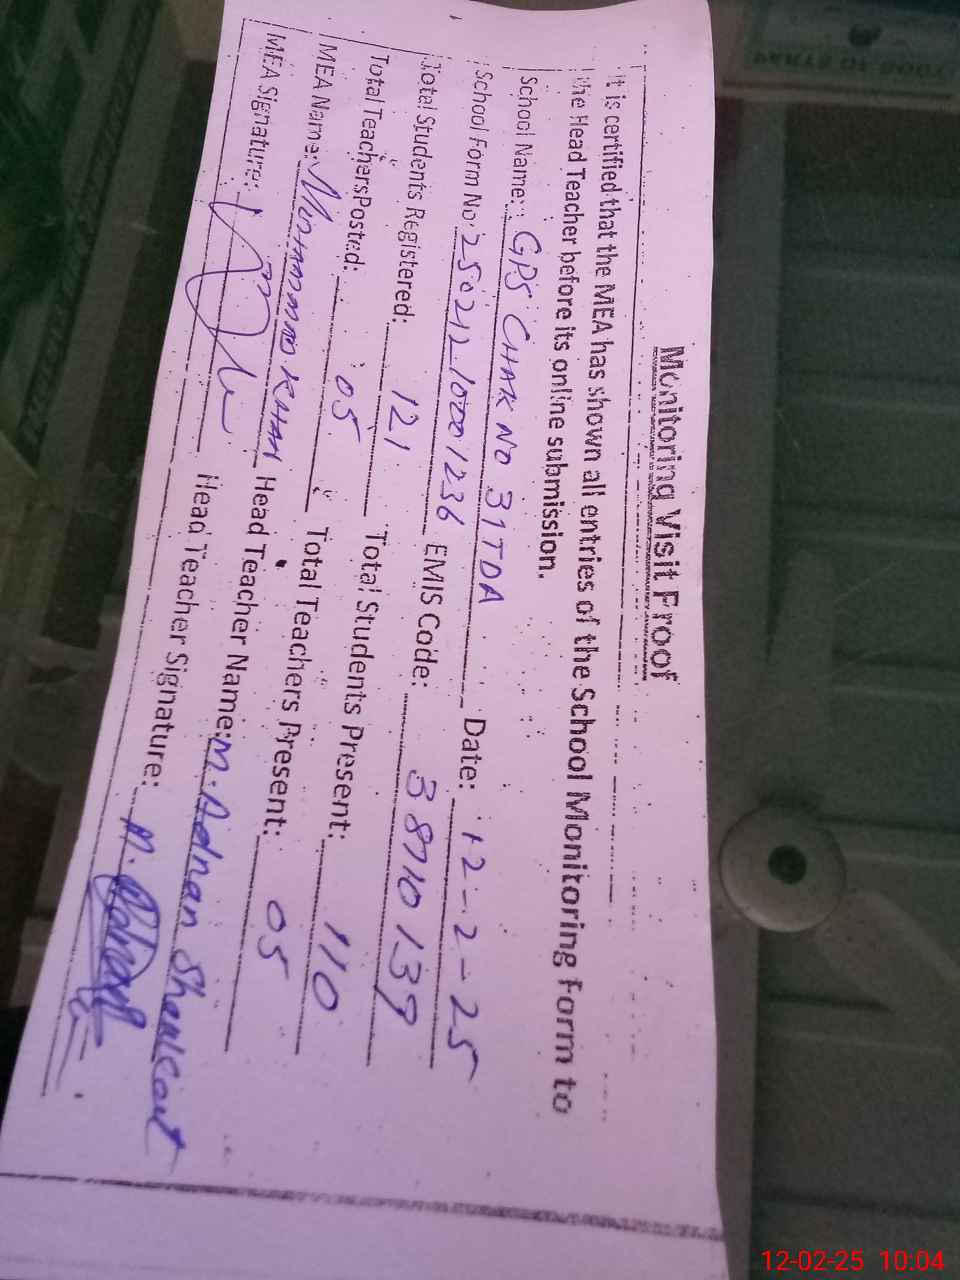 Monitoring Visit Proof
It is certified that the MEA has shown all entries of the School Monitoring Form to
the Head Teacher before its online submission.
School Name: GPS CHAK NO 31TDA Date: 12-2-25
School Form No: 250212-10001236 EMIS Code: 38710139
Total Students Registered: 121 Total Students Present: 110
Total Teachers Posted: 05 Total Teachers Present: 05
MEA Name: MUHAMMAD KHAN Head Teacher Name: M. Adnan Shoukat
MEA Signature: Head Teacher Signature: M. Adnan
12-02-25 10:04